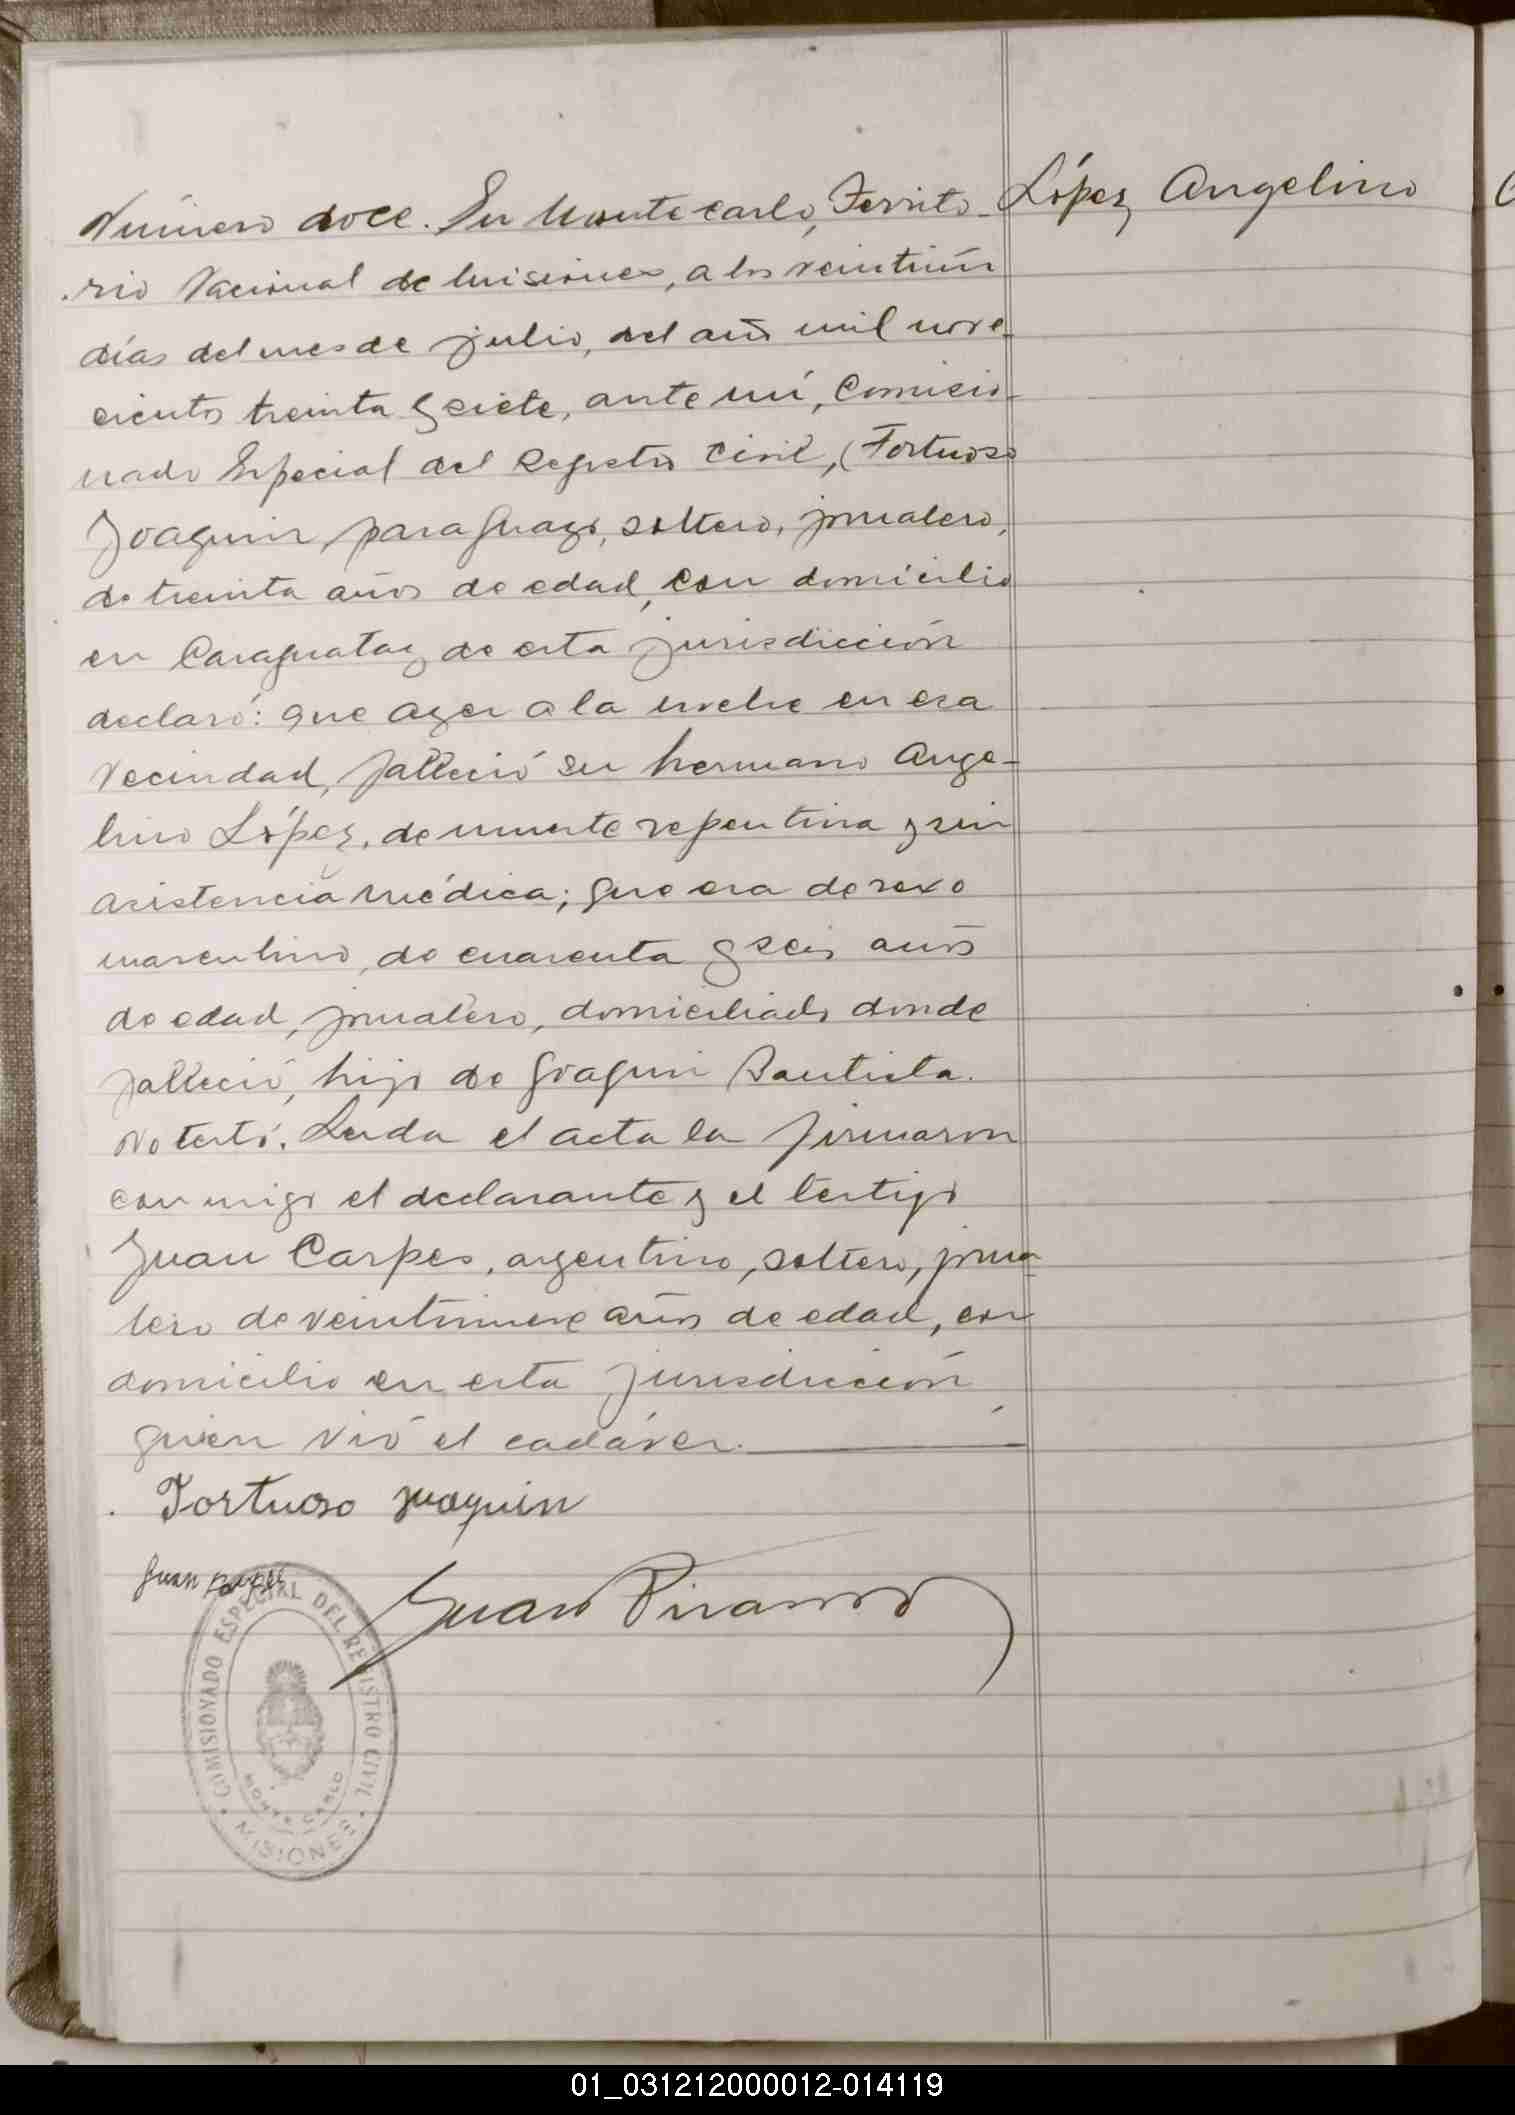 Número doce. En Montecarlo, Territo- López, Angelino
rio Nacional de Misiones, a los veintiún
días del mes de julio, del año mil nove-
cientos treinta y siete, ante mí, Comisio-
nado Especial del Registro Civil, (Tortuoso
Joaquin, paraguayo, soltero, jornalero,
de treinta años de edad, con domicilio
en Caraguatay de esta jurisdicción
declaró: que ayer a la noche en esa
vecindad, falleció su hermano Ange-
lino López, de muerte repentina y sin
asistencia médica; que era de sexo
masculino, de cuarenta y seis años
de edad, jornalero, domiciliado donde
falleció, hijo de Joaquin Bautista.
No testó. Leida el acta la firmaron
conmigo el declarante y el testigo
Juan Carpes, argentino, soltero, jorna-
lero de veintinueve años de edad, con
domicilio en esta jurisdicción,
quien vió el cadáver.
Tortuoso Joaquin
Juan
Juan
COMISIONADO ESPECIAL DEL REGISTRO CIVIL
MONTE CARLO
MISIONES
01_031212000012-014119